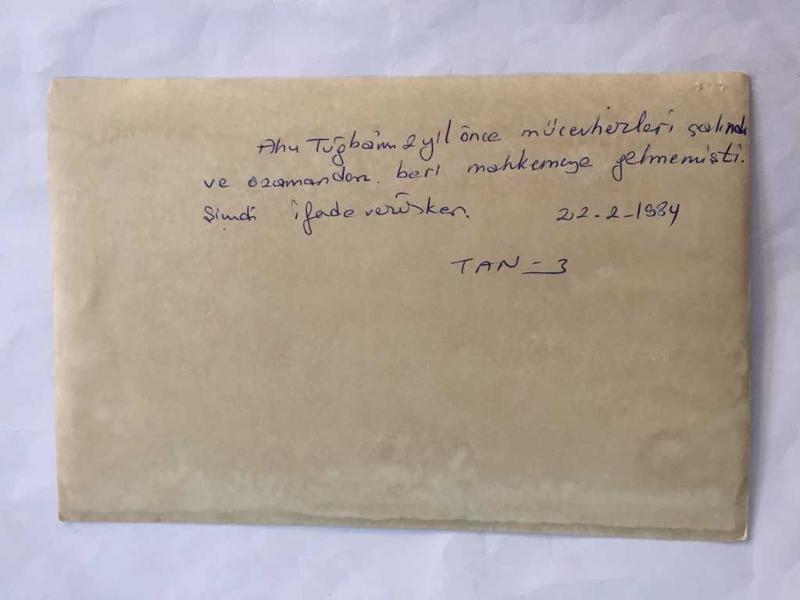 Ahu Tuğba'nın 2 yıl önce mücevherleri çalındı
ve ozamandan beri mahkemeye gelmemişti.
Şimdi ifade verirken. 22-2-1984
TAN-3